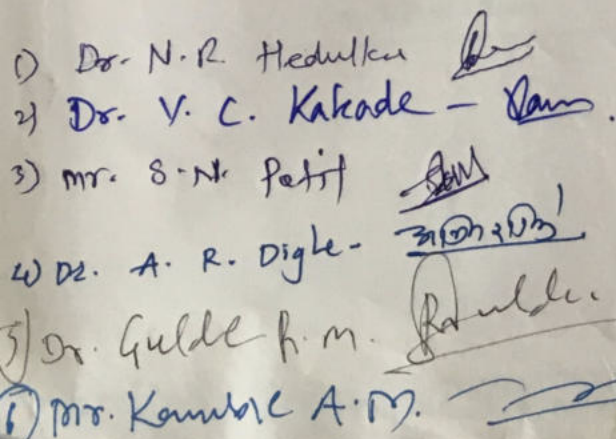 1) Dr. N. R. Hedulkar
2) Dr. V. C. Kakade -
3) Mr. S. N. Patil
4) Dr. A. R. Dighe -
5) Dr. Gulde R. M.
6) Mr. Kamble A. M.